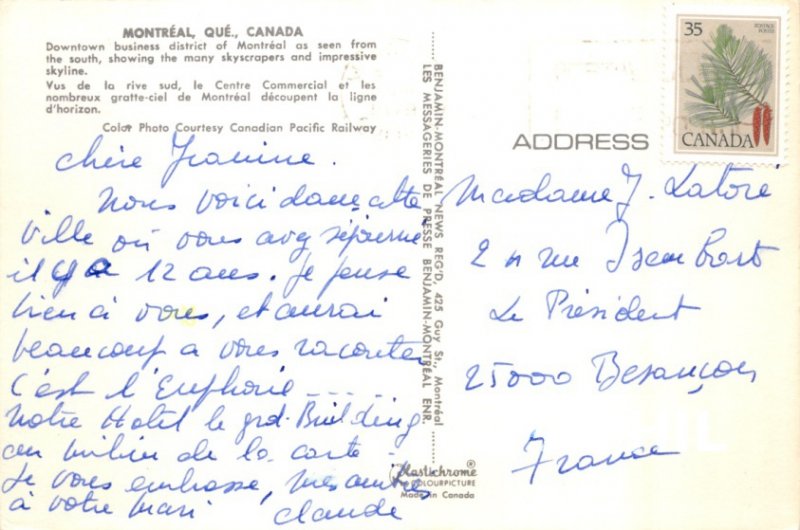 MONTRÉAL, QUÉ., CANADA
Downtown business district of Montréal as seen from
the south, showing the many skyscrapers and impressive
skyline.
Vus de la rive sud, le Centre Commercial et les
nombreux gratte-ciel de Montréal découpent la ligne
d'horizon.
Color Photo Courtesy Canadian Pacific Railway
chère Jeanine.
Nous voici dans cette
ville où vous avez séjourné
il y a 12 ans. Je pense
bien à vous, et aurai
beaucoup a vous raconter
C'est l'Euphorie
Notre Hotel le grd. Building
au milieu de la carte
Je vous embrasse, mes amitiés
à votre mari Claude
BENJAMIN-MONTRÉAL NEWS REG'D, 425 Guy St., Montréal
LES MESSAGERIES DE PRESSE BENJAMIN-MONTRÉAL ENR.
Plastichrome®
COLOURPICTURE
Made in Canada
35
POSTAGE
POSTES
CANADA
ADDRESS
Madame J. Latoré
2 n rue Isenbart
Le Président
25000 Besançon
France